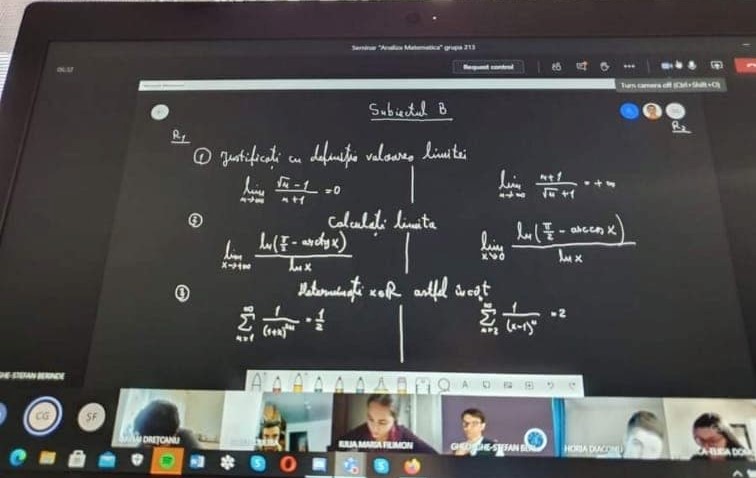 Seminar "Analiza Matematica" grupa 213
05:37
Request control
Turn camera off (Ctrl+Shift+O)
Subiectul B
R₁
R₂
① Justificați cu definiția valoarea limitei
lim n→∞ (√n − 1)/(n+1) = 0 | lim n→∞ (n+1)/(√n +1) = +∞
② Calculați limita
lim x→+∞ ln(π/2 − arctg x)/ln x | lim x↘0 ln(π/2 − arccos x)/ln x
③ Determinați x∈R astfel încât
∑ n=1 ∞ 1/(1+x)²ⁿ = 1/2 | ∑ n=2 ∞ 1/(x−1)ⁿ = 2
HE-STEFAN BERINDE
CG
SF
DREȚCANU
IULIA MARIA FILIMON
GHEORGHE-STEFAN BERI
HORIA DIACONU